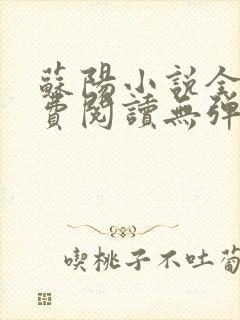 蘇陽小说全
費閱讀無彈
喫桃子不吐葡